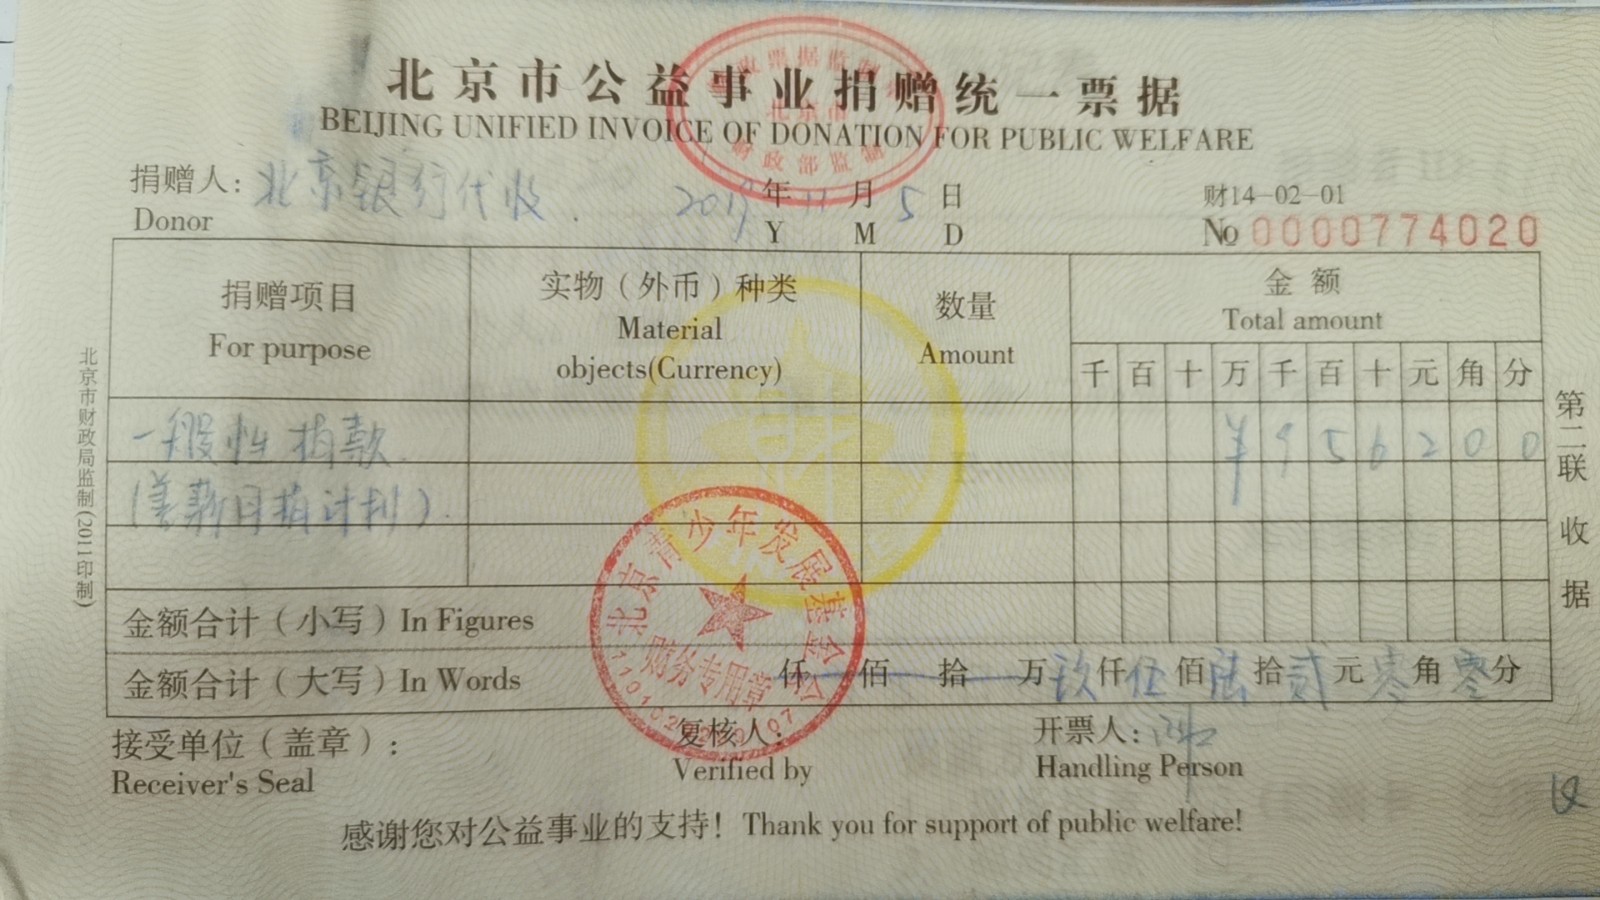 北京市公益事业捐赠统一票据
BEIJING UNIFIED INVOICE OF DONATION FOR PUBLIC WELFARE
财政票据监制
北京市
财政部监制
捐赠人：北京银行代收
Donor
2017年11月5日
Y M D
财14-02-01
No 0000774020
捐赠项目
For purpose
实物（外币）种类
Material
objects(Currency)
数量
Amount
金额
Total amount
千 百 十 万 千 百 十 元 角 分
一般性捐款
¥ 9 5 6 2 0 0
月捐计划）
北京青少年发展基金会
财务专用章
金额合计（小写）In Figures
金额合计（大写）In Words
仟 佰 拾 万 玖仟伍佰陆拾贰元零角零分
接受单位（盖章）：
Receiver's Seal
复核人：
Verified by
开票人：
Handling Person
感谢您对公益事业的支持！Thank you for support of public welfare!
北京市财政局监制(2011印制)
第二联 收据